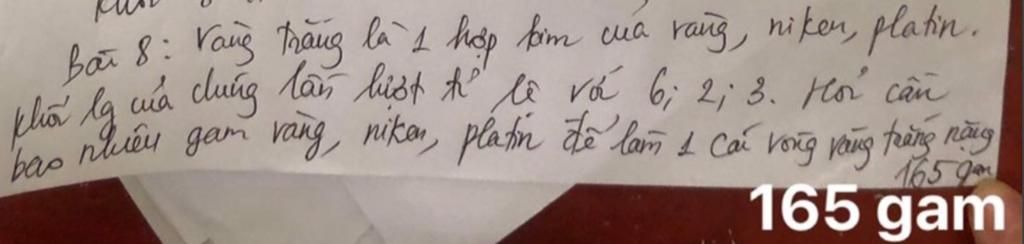 Bài 8: Vàng trắng là 1 hợp kim của vàng, niken, platin.
khối lg của chúng lần lượt tỉ lệ với 6; 2; 3. Hỏi cần
bao nhiêu gam vàng, niken, platin để làm 1 cái vòng vàng trắng nặng
165 gam
165 gam